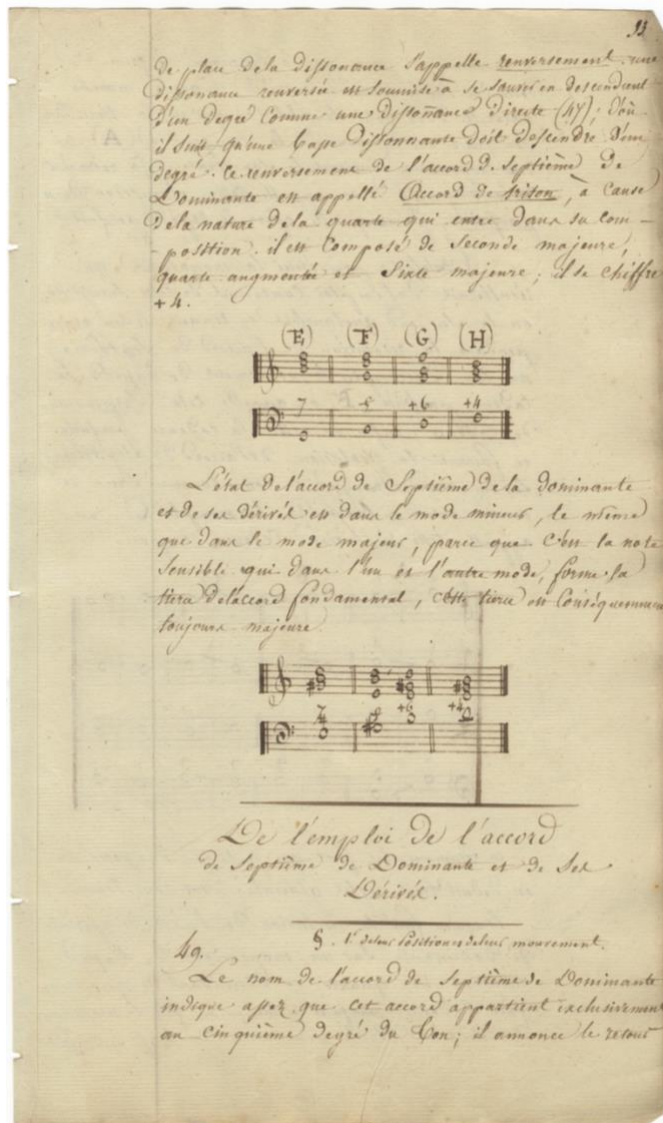 93
de place de la dissonance s'appelle renversement. une
dissonance renversée est soumise à se sauver en descendant
d'un degré comme une dissonance directe (47); d'où
il suit qu'une basse dissonnante doit descendre d'un
degré. ce renversement de l'accord de septième de
Dominante est appellé Accord de triton, à cause
de la nature de la quarte qui entre dans sa com-
-position. il est composé de seconde majeure,
quarte augmentée et sixte majeure; il se chiffre
+4.
(E) (F) (G) (H)
7 +6 +4
L'état de l'accord de septième de la dominante
et de ses dérivés est dans le mode mineur, le même
que dans le mode majeur, parce que c'est la note
sensible qui dans l'un et l'autre mode, forme la
tierce de l'accord fondamental, cette tierce est conséquemment
toujours majeure.
7 +6 +4
De l'emploi de l'accord
de septième de Dominante et de ses
Dérivés.
§. 1er de leurs positions de leurs mouvement.
49.
Le nom de l'accord de septième de Dominante
indique assez que cet accord appartient exclusivement
au cinquième degré du ton; il annonce le retour